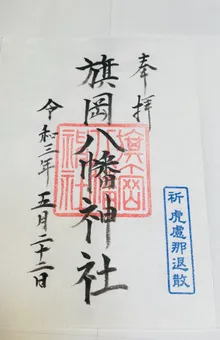 奉拝
旗岡八幡神社
令和三年五月二十二日
祈 虎處那退散